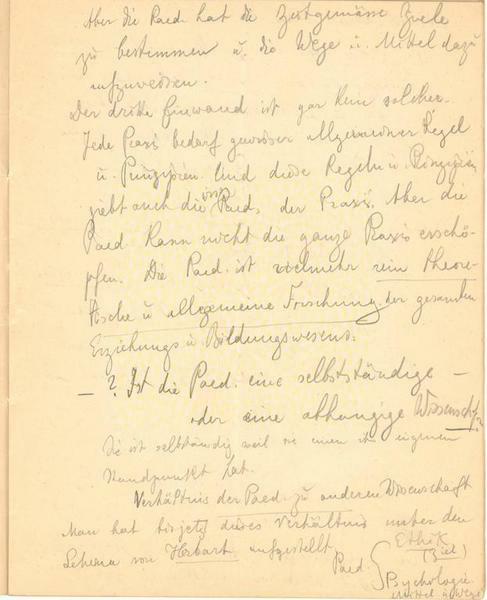 Aber die Paed. hat die zeitgemässe Ziele
zu bestimmen u. die Wege u. Mittel dazu
aufzuweisen.
Der dritte Einwand ist gar kein solcher.
Jede Praxis bedarf gewisser allgemeiner Regel
u. Prinzipien. Und diese Regeln u. Prinzipien
giebt auch die Paed. der Praxis. Aber die
Paed. kann nicht die ganze Praxis erschö-
pfen. Die Paed. ist vielmehr rein theore-
tische u. allgemeine Forschung der gesamten
Erziehungs u. Bildungswesens.
– ? Ist die Paed. eine selbstständige –
oder eine abhängige Wissensch.?
Sie ist selbständig weil sie einen eigenen
Standpunkt hat.
Verhältnis der Paed. zu anderen Wissenschaft
Man hat bis jetz dieses Verhältnis unter dem
Schema von Herbart aufgestellt
Paed. { Ethik
(Ziel)
Psychologie
Mittel u. Wege